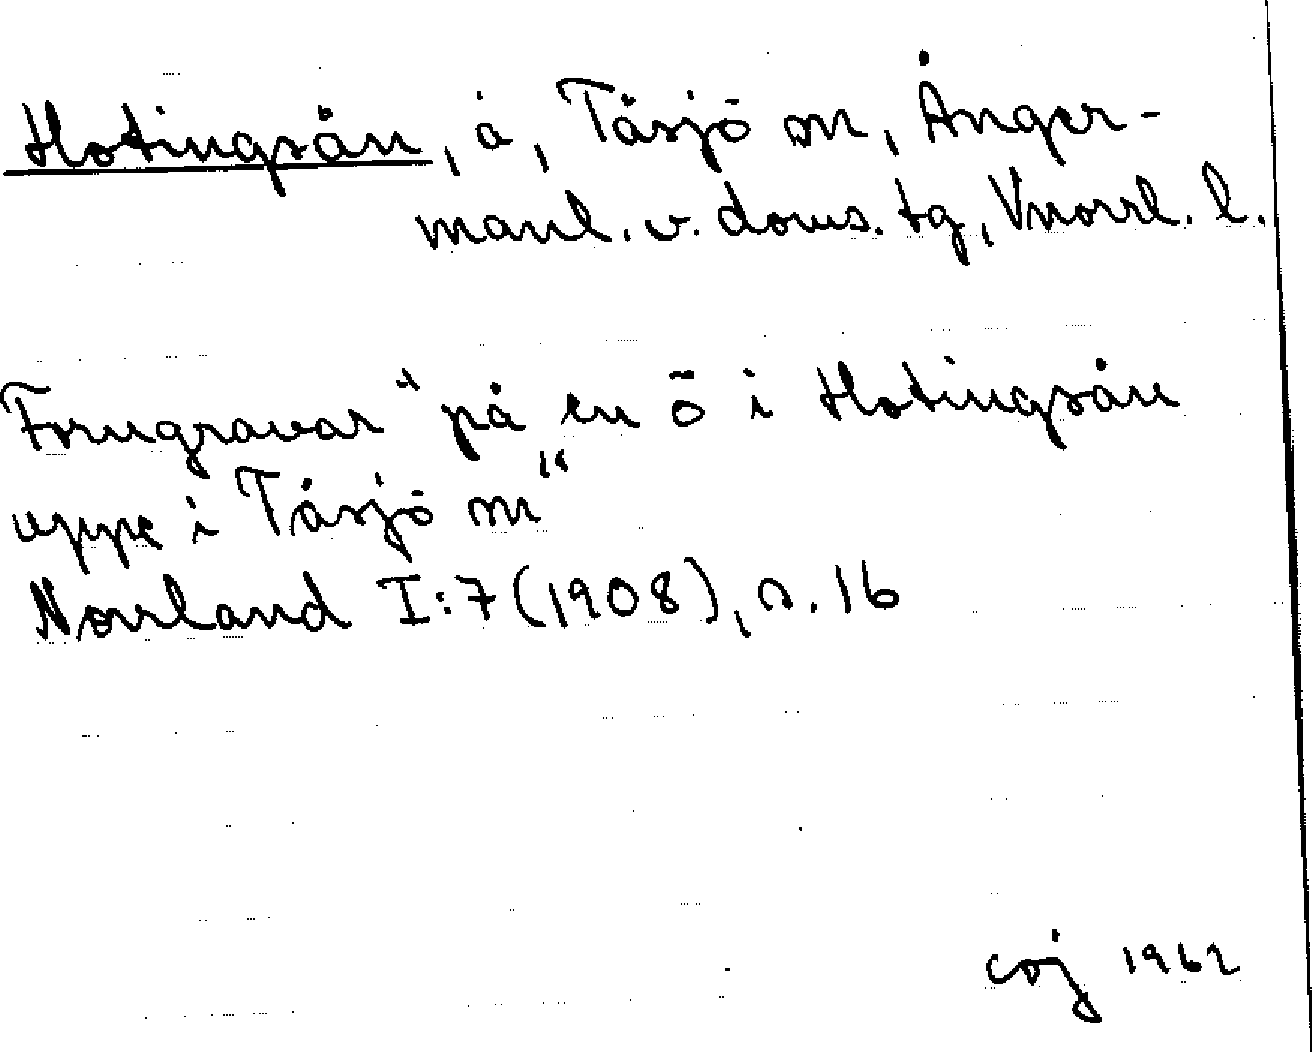 Hotingsån, å, Tåsjö sn, Ånger-
manl. v. doms. tg, Vnorrl. l.
Forngravar "på en ö i Hotingsån
uppe i Tåsjö sn"
Norrland I:7 (1908), s. 16
coj 1962